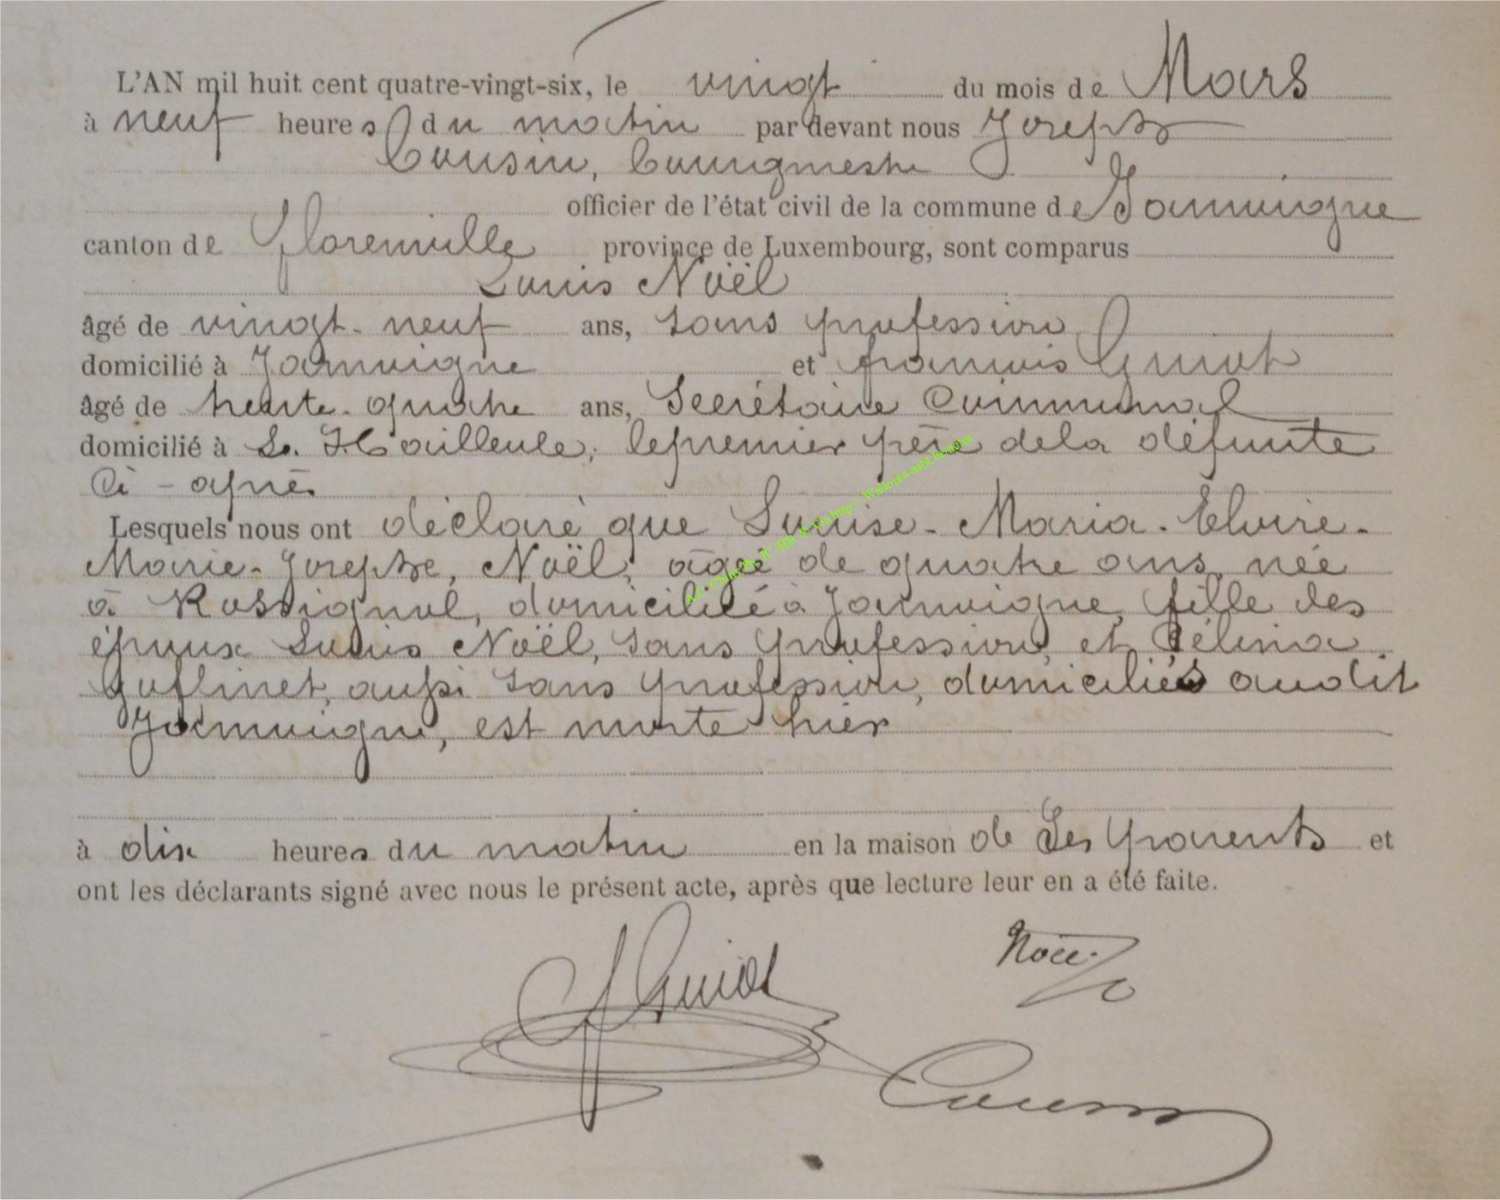 L'AN mil huit cent quatre-vingt-six, le vingt du mois de Mars
à neuf heures du matin par devant nous Joseph
Cousin, bourgmestre
officier de l'état civil de la commune de Jamoigne
canton de Florenville province de Luxembourg, sont comparus
Louis Noël
âgé de vingt-neuf ans, sans profession
domicilié à Jamoigne et françois Guiot
âgé de trente-quatre ans, Secrétaire Communal
domicilié à St. Hailleule, le premier père de la défunte
Ci-après
Lesquels nous ont déclaré que Louise-Maria-Elvire-
Marie-Josephe, Noël, agée de quatre ans, née
à Rossignol, domiciliée à Jamoigne, fille des
époux Louis Noël, sans profession, et Célina
Goffinet, aussi sans profession, domiciliés audit
Jamoigne, est morte hier
à dix heures du matin en la maison de Ses Parents et
ont les déclarants signé avec nous le présent acte, après que lecture leur en a été faite.
Noël
f Guiot
Cousin